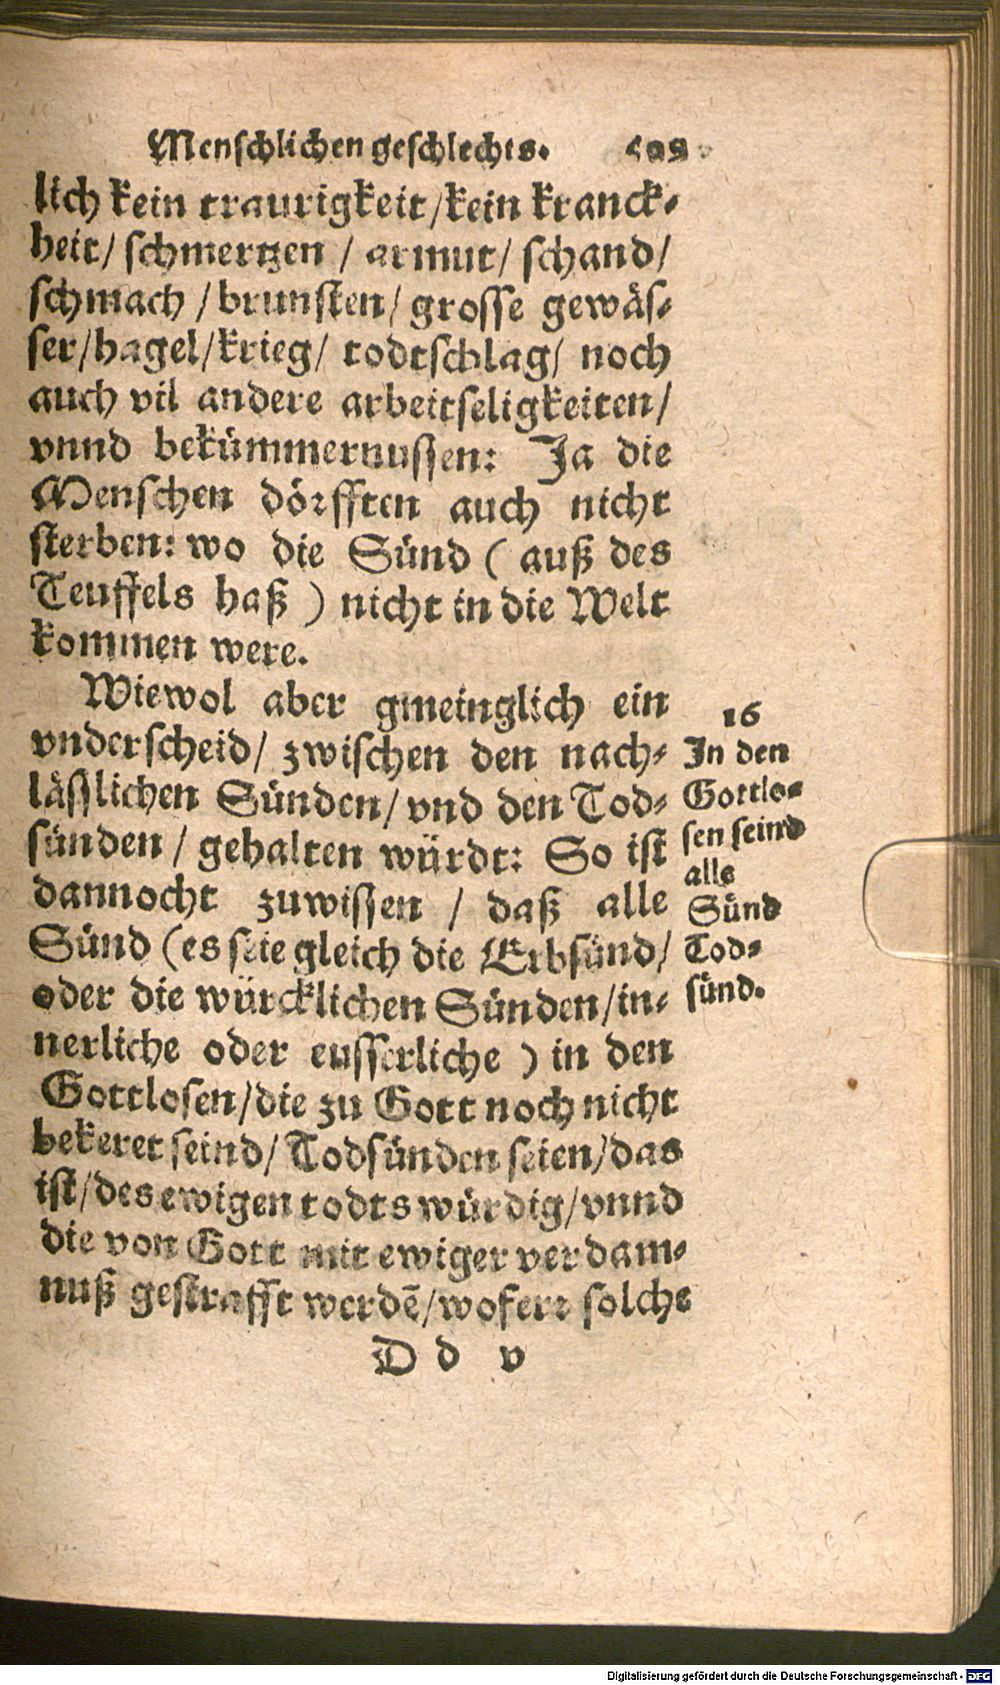 Menschlichen geschlechts.
lich kein traurigkeit/kein kranck-
heit/ schmertzen / armut/ schand/
schmach / brunsten/ grosse gewäs-
ser/hagel/krieg/ todtschlag/ noch
auch vil andere arbeitseligkeiten/
vnnd bekümmernussen: Ja die
Menschen dörfften auch nicht
sterben: wo die Sünd ( auß des
Teuffels haß ) nicht in die Welt
kommen were.
Wiewol aber gmeinglich ein
vnderscheid/ zwischen den nach-
lässlichen Sünden/ vnd den Tod-
sünden / gehalten würdt: So ist
dannocht zuwissen / daß alle
Sünd (es seie gleich die Erbsünd/
oder die würcklichen Sünden/in-
nerliche oder eusserliche ) in den
Gottlosen/die zu Gott noch nicht
bekeret seind/ Todsünden seien/das
ist/des ewigen todts würdig/vnnd
die von Gott mit ewiger verdam-
nuß gestrafft werdẽ/wofern solche
D d v
16
In den
Gottlo-
sen seind
alle
Sünd
Tod-
sünd.
Digitalisierung gefördert durch die Deutsche Forschungsgemeinschaft - DFG